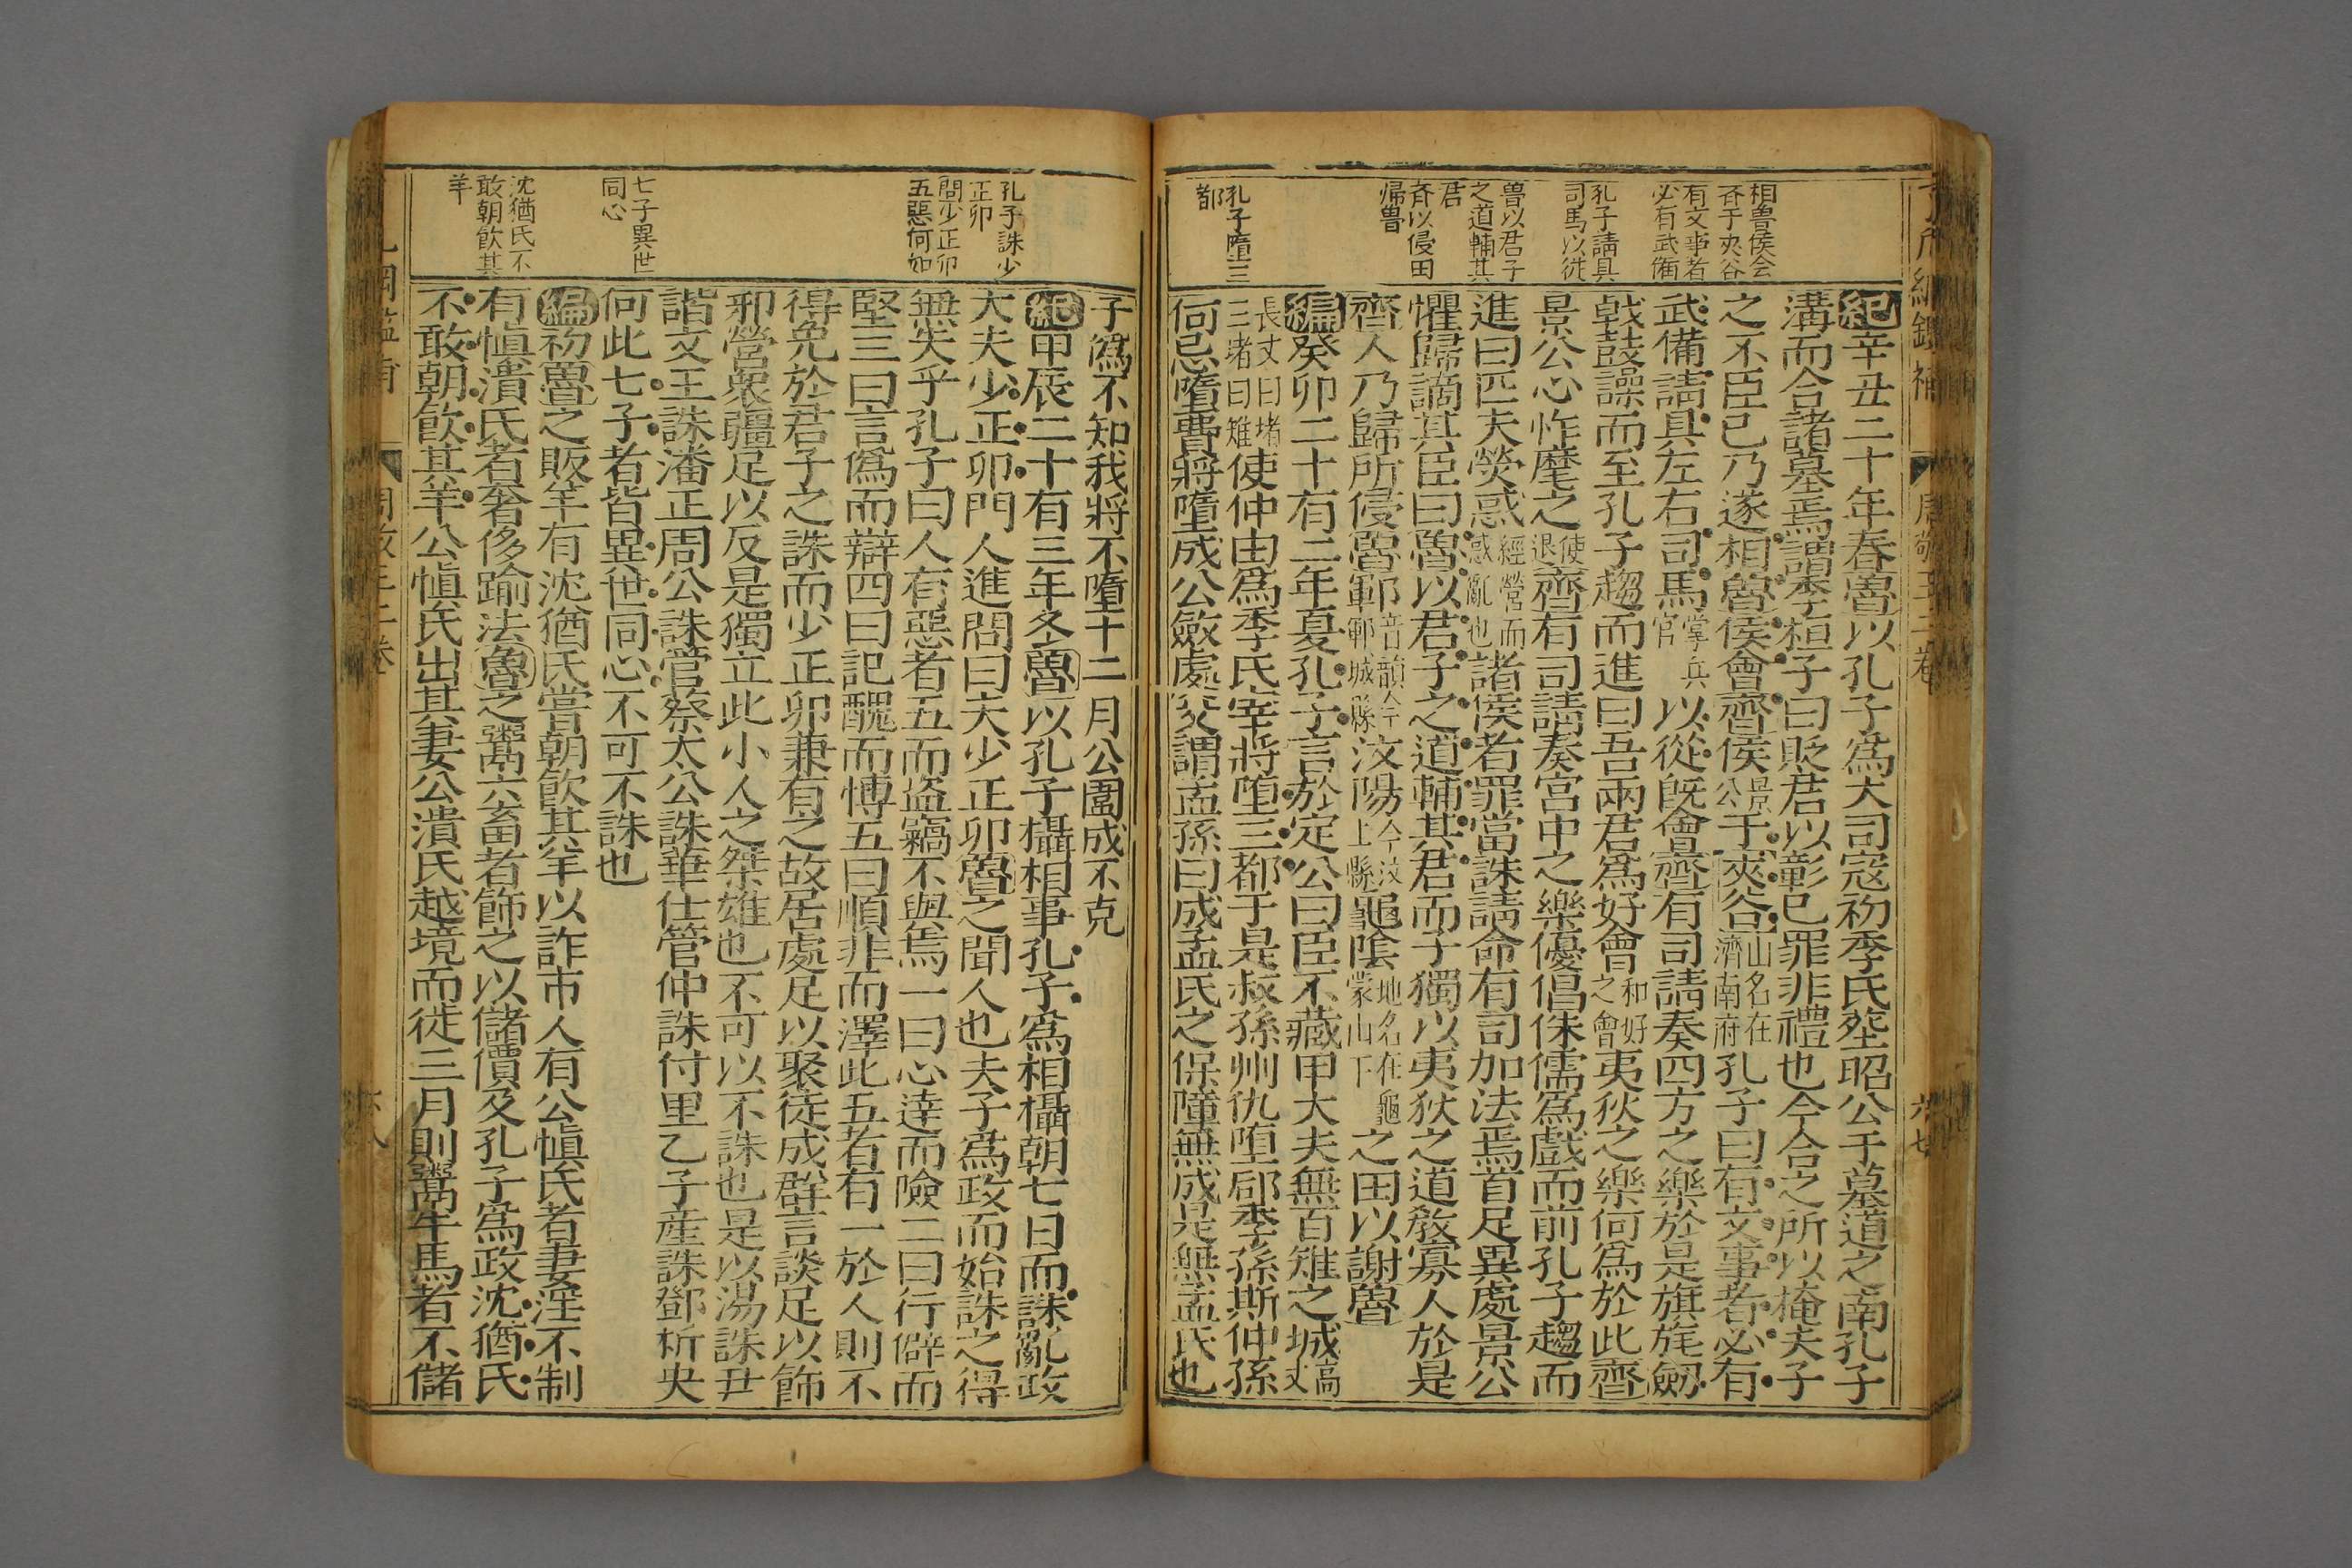 相魯侯会
斉于夾谷
有文事者
必有武備
孔子請具
司馬以從
魯以君子
之道輔其
君
斉以侵田
帰魯
孔子隳三
都
紀辛丑二十年春魯以孔子爲大司寇初季氏塟昭公于墓道之南孔子
溝而合諸墓焉謂季桓子曰貶君以彰己罪非禮也今合之所以掩夫子
之不臣已乃遂相魯侯會齊侯景公于夾谷山名在濟南府孔子曰有文事者必有
武備請具左右司馬掌兵官以從旣會齊有司請奏四方之樂於是旗旄劔
戟鼓譟而至孔子趨而進曰吾兩君爲好會和好之會夷狄之樂何爲於此齊
景公心怍麾之使退齊有司請奏宮中之樂優倡侏儒爲戲而前孔子趨而
進曰匹夫熒惑經營而惑亂也諸侯者罪當誅請命有司加法焉首足異處景公
懼歸謫其臣曰魯以君子之道輔其君而子獨以夷狄之道敎寡人於是
齊人乃歸所侵魯鄆音韻今鄆城縣汶陽今汶上縣龜陰地名在龜蒙山下之田以謝魯
編癸卯二十有二年夏孔子言於定公曰臣不藏甲大夫無百雉之城高丈
長丈曰堵三堵曰雉使仲由爲季氏宰將堕三都于是叔孫州仇堕郈季孫斯仲孫
何忌隳費將墮成公斂處父謂孟孫曰成孟氏之保障無成是無孟氏也
孔子誅少
正卯
問少正卯
五惡何如
七子異世
同心
沈猶氏不
敢朝飮其
羊
子爲不知我將不墮十二月公圍成不克
紀甲辰二十有三年冬魯以孔子攝相事孔子爲相攝朝七日而誅亂政
大夫少正卯門人進問曰夫少正卯魯之聞人也夫子爲政而始誅之得
無失乎孔子曰人有惡者五而盜竊不與焉一曰心逹而險二曰行僻而
堅三曰言僞而辯四曰記醜而博五曰順非而澤此五者有一於人則不
得免於君子之誅而少正卯兼有之故居處足以聚徒成群言談足以飾
邪營衆彊足以反是獨立此小人之桀雄也不可以不誅也是以湯誅尹
諧文王誅潘正周公誅管蔡太公誅華仕管仲誅付里乙子産誅鄧析史
何此七子者皆異世同心不可不誅也
編初魯之販羊有沈猶氏嘗朝飮其羊以詐市人有公愼氏者妻淫不制
有愼潰氏者奢侈踰法魯之鬻六畜者飾之以儲價及孔子爲政沈猶氏
不敢朝飮其羊公愼氏出其妻公潰氏越境而徙三月則鬻牛馬者不儲